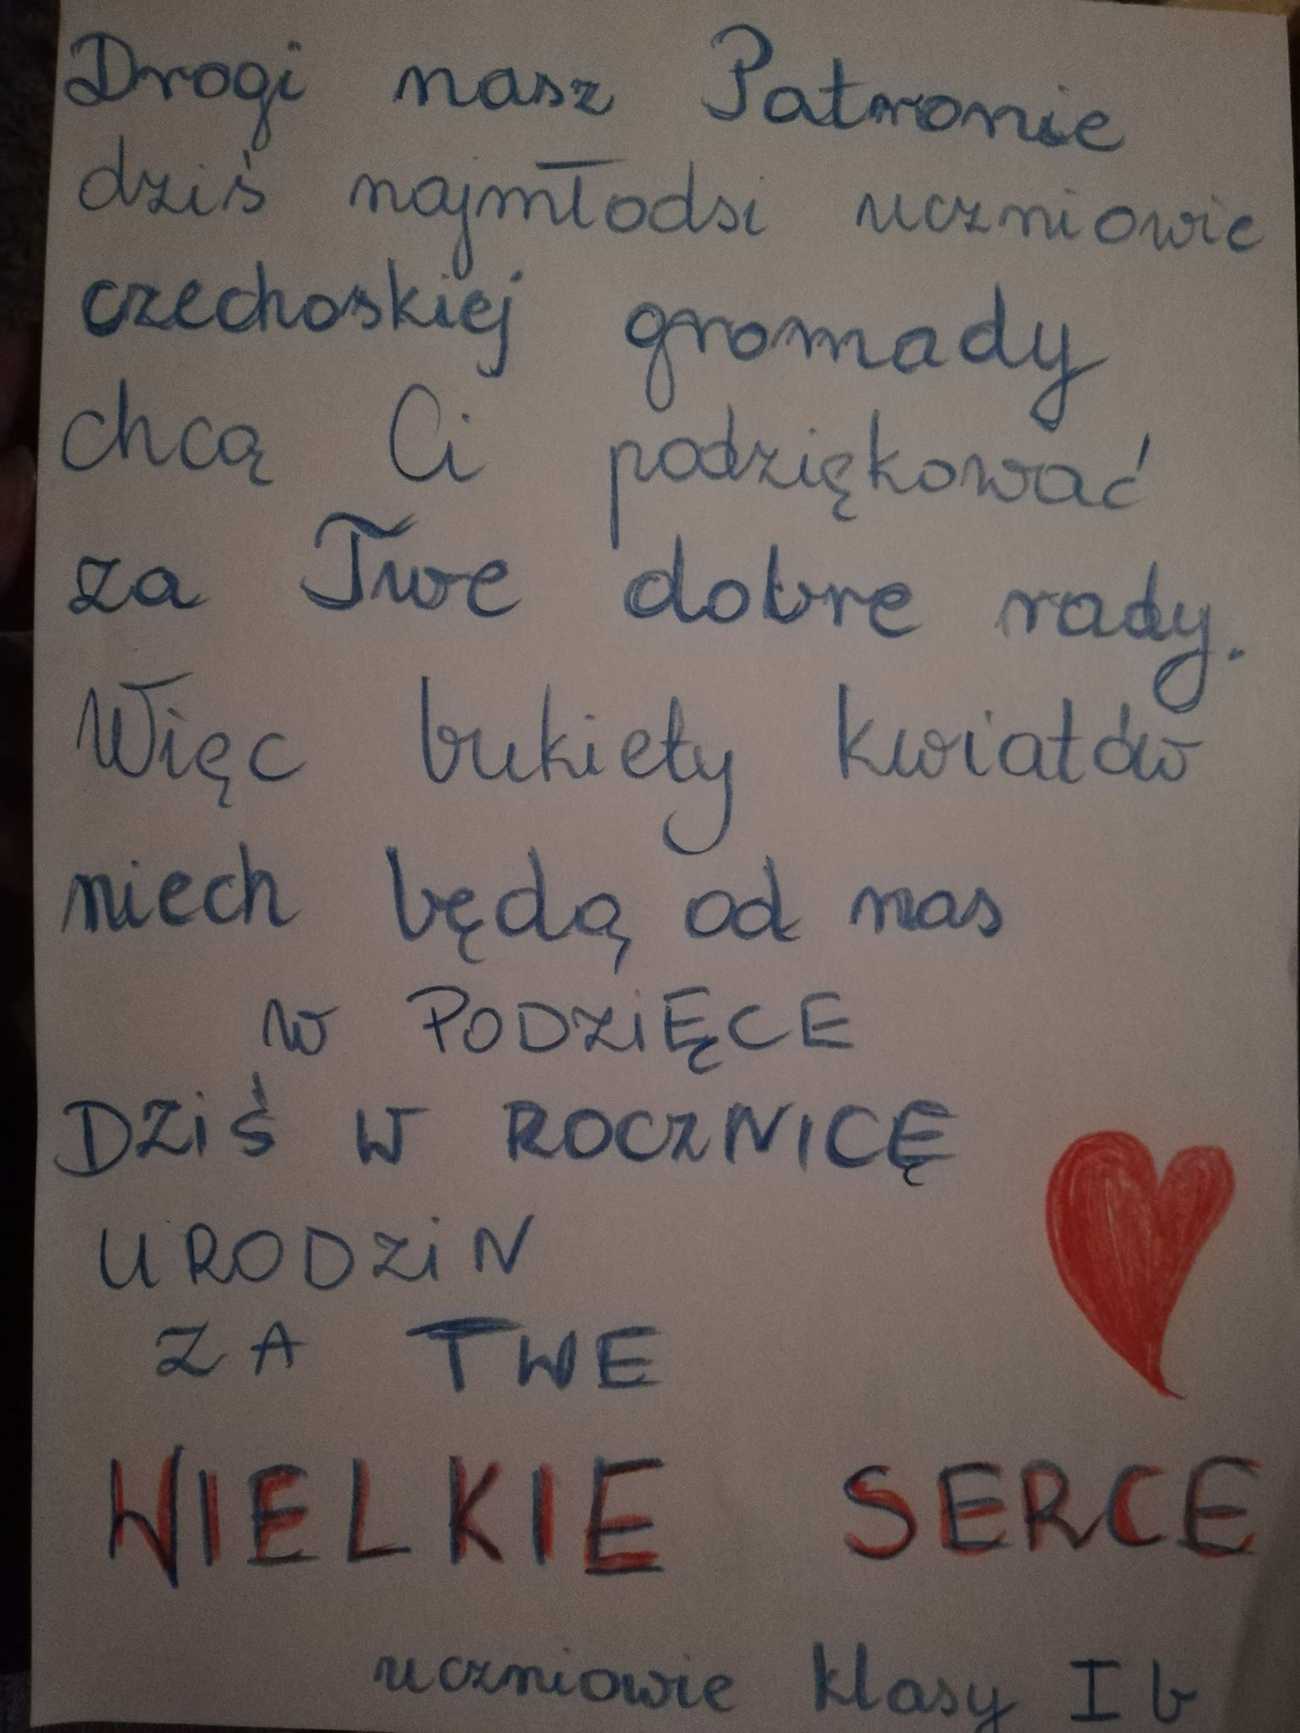 Drogi nasz Patronie
dziś najmłodsi uczniowie
czechoskiej gromady
chcą Ci podziękować
za Twe dobre rady.
Więc bukiety kwiatów
niech będą od nas
w PODZIĘCE
DZIŚ W ROCZNICĘ
URODZIN
ZA TWE
WIELKIE SERCE
uczniowie klasy I b